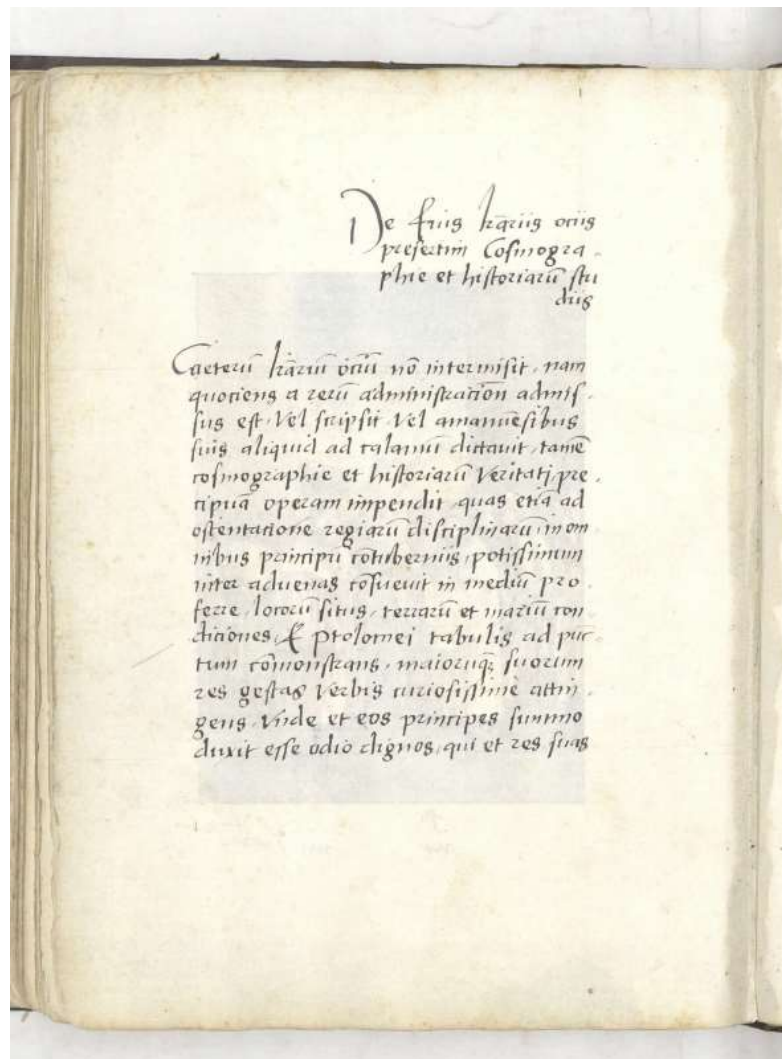 De eius lr̄ariis ociis
presertim Cosmogra-
phie et historiarū stu
diis
Caeterū lr̄ariū ociū nō intermisit, nam
quociens a rerū administracion admis-
sus est, Vel scripsit, Vel amanuēsibus
suis aliquid ad calamū dictauit, tamē
cosmographie et historiarū Veritati, pre-
cipuā operam impendit, quas etiā ad
ostentacionē regiarū disciplinarū, in om
nibus principū cōtuberniis, potissimum
inter aduenas cōsueuit in mediū pro-
ferre, locorū situs, terrarū et mariū con-
diciones, & Ptolomei tabulis ad pūc-
tum cōmonstrans, maiorūq; suorum
res gestas Verbis curiosissime attin-
gens, Vnde et eos principes summo
duxit esse odio dignos, qui et res suas